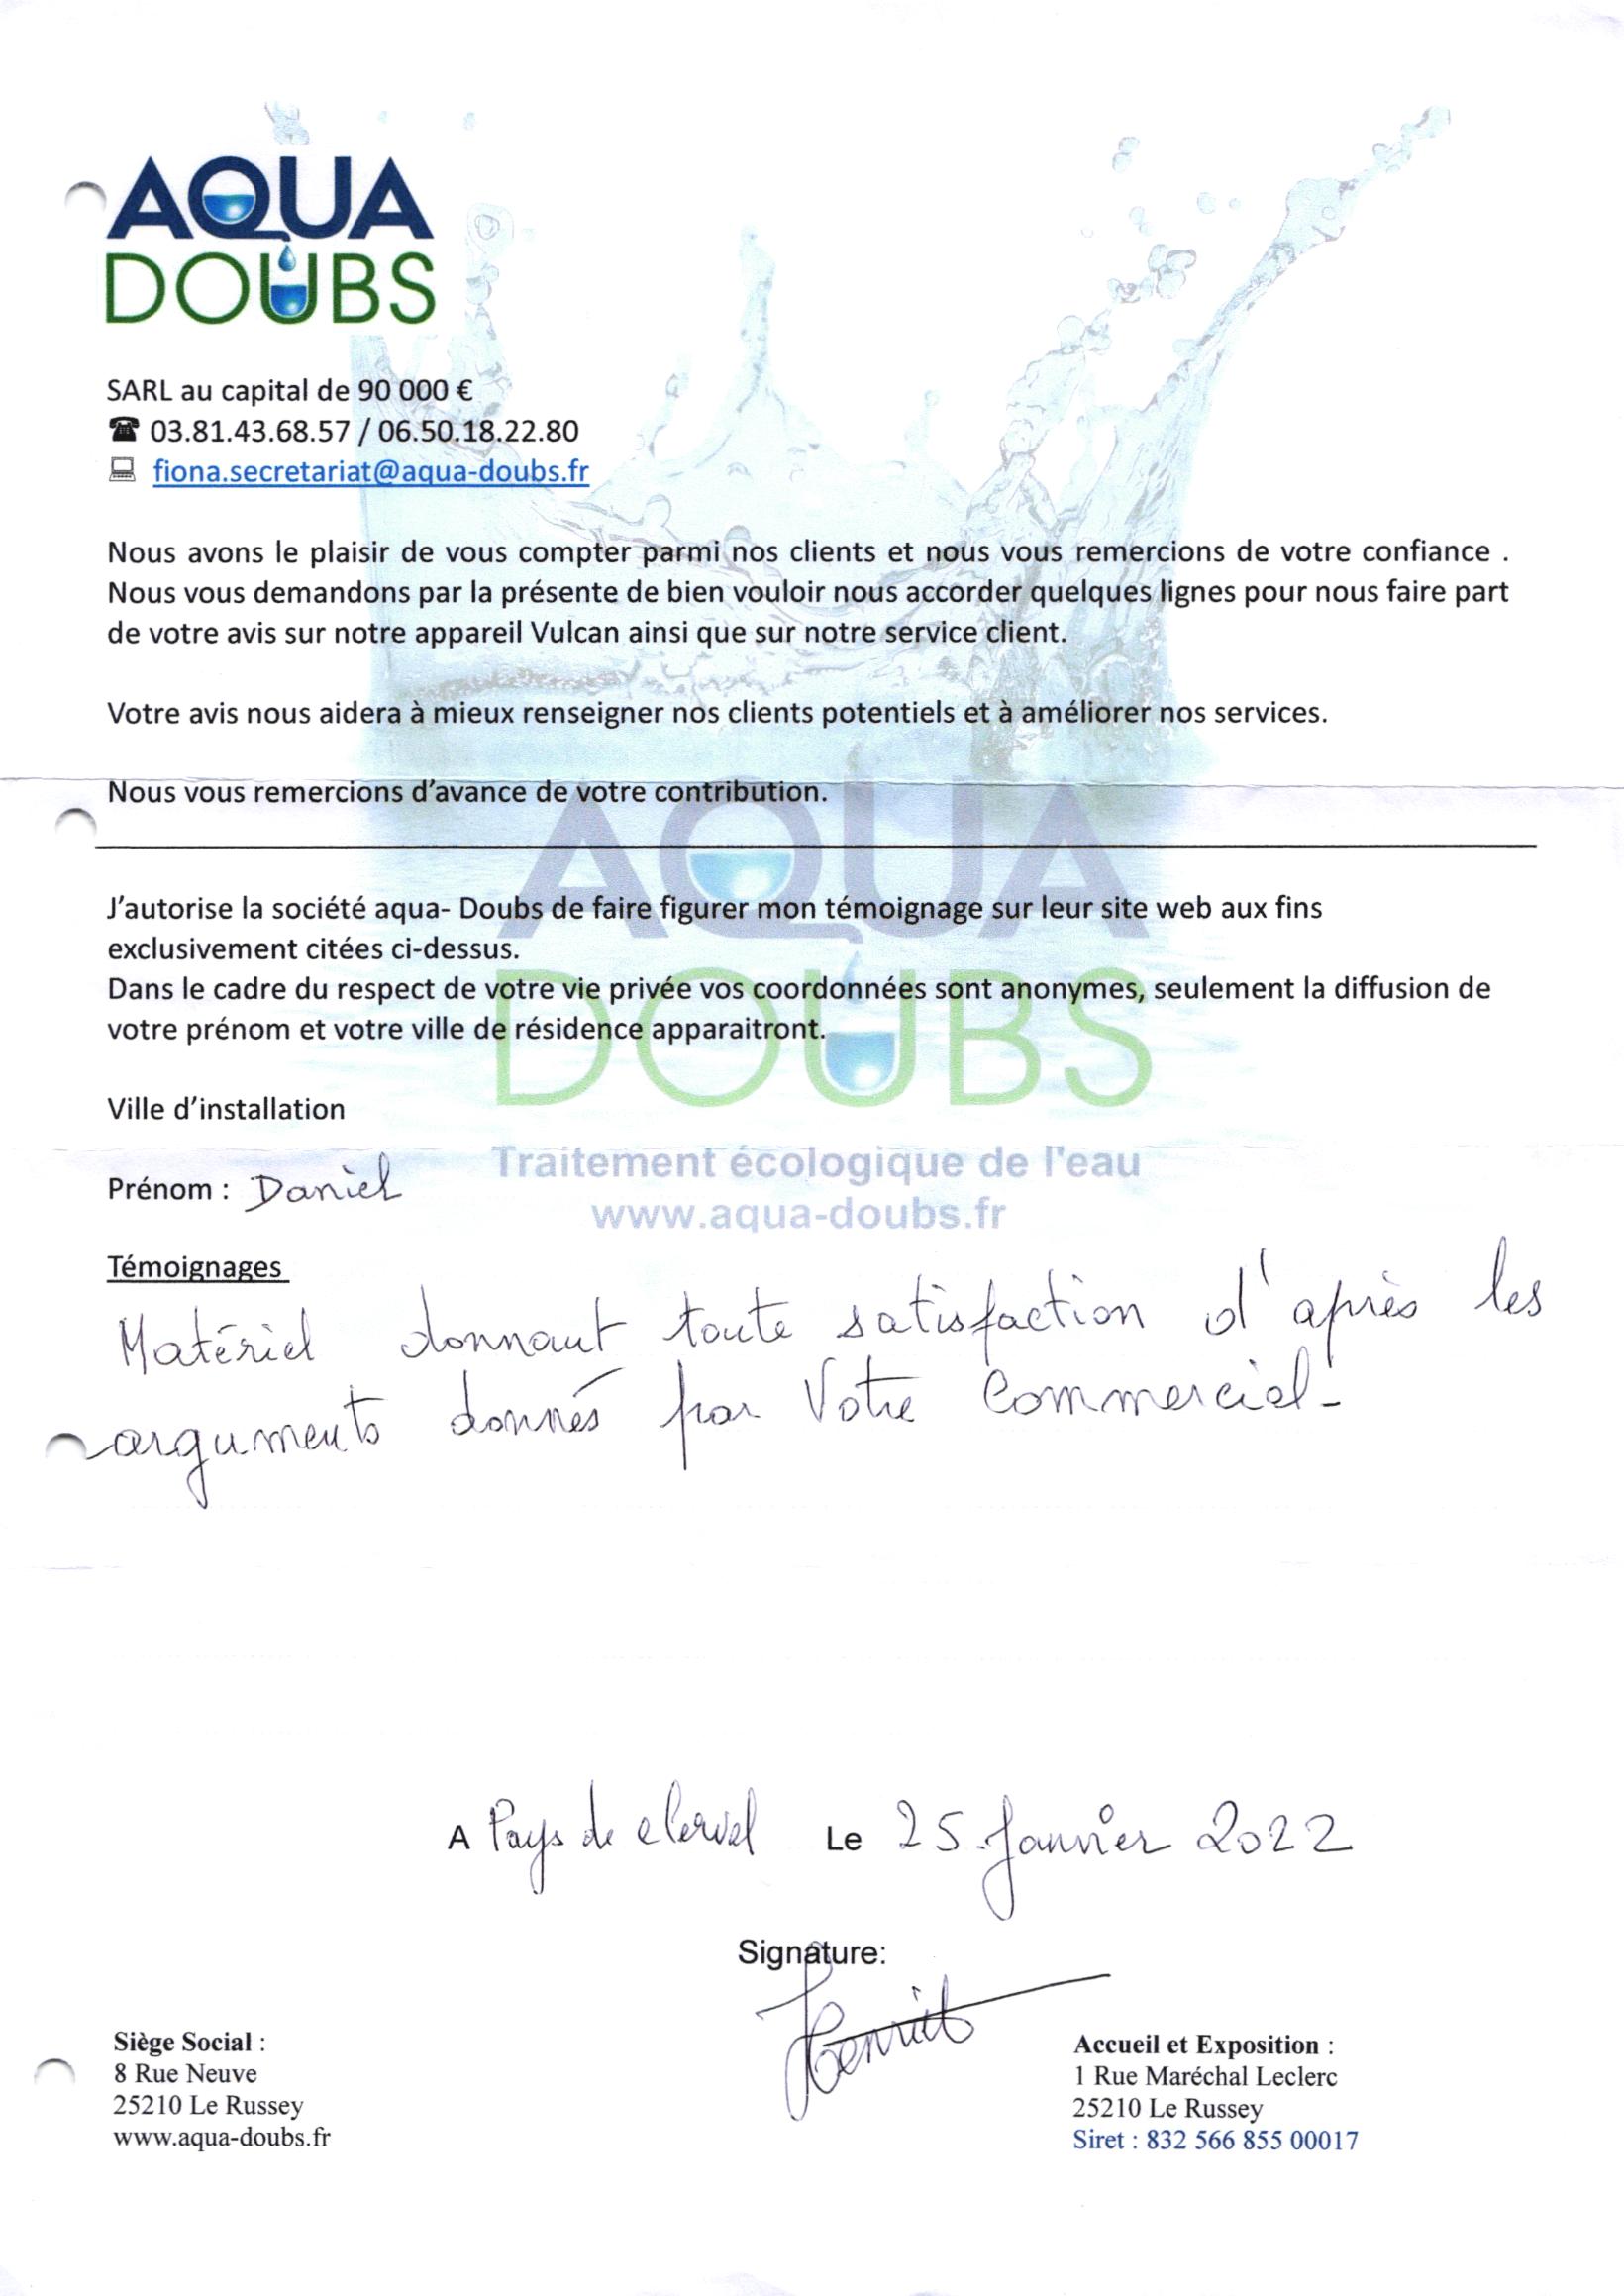 AQUA
DOUBS
SARL au capital de 90 000 €
03.81.43.68.57 / 06.50.18.22.80
fiona.secretariat@aqua-doubs.fr
Nous avons le plaisir de vous compter parmi nos clients et nous vous remercions de votre confiance .
Nous vous demandons par la présente de bien vouloir nous accorder quelques lignes pour nous faire part
de votre avis sur notre appareil Vulcan ainsi que sur notre service client.
Votre avis nous aidera à mieux renseigner nos clients potentiels et à améliorer nos services.
Nous vous remercions d’avance de votre contribution.
AQUA
J’autorise la société aqua- Doubs de faire figurer mon témoignage sur leur site web aux fins
exclusivement citées ci-dessus.
Dans le cadre du respect de votre vie privée vos coordonnées sont anonymes, seulement la diffusion de
votre prénom et votre ville de résidence apparaitront.
DOUBS
Ville d’installation
Traitement écologique de l'eau
Prénom : Daniel
www.aqua-doubs.fr
Témoignages
Matériel donnant toute satisfaction d'après les
arguments donnés par Votre Commercial-
A Pays de clerval Le 25 Janvier 2022
Signature:
Henriet
Siège Social :
8 Rue Neuve
25210 Le Russey
www.aqua-doubs.fr
Accueil et Exposition :
1 Rue Maréchal Leclerc
25210 Le Russey
Siret : 832 566 855 00017